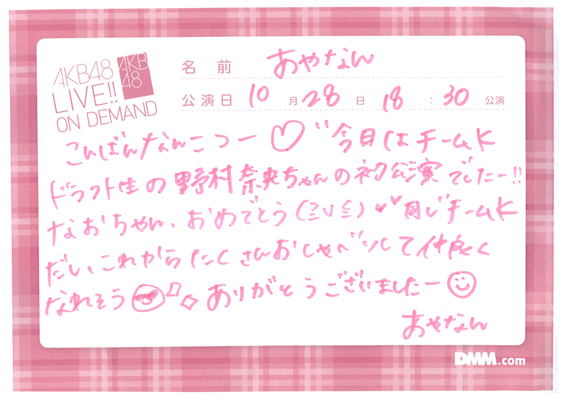 AKB48
LIVE!!
ON DEMAND
AKB
48
名前 あやなん
公演日 10月28日 18:30公演
こんばんなんこつー♡"今日はチームK
ドラフト生の野村奈央ちゃんの初公演でしたー!!
なおちゃん、おめでとう(≧∪≦)♥"同じチームK
だし、これからたくさんおしゃべりして仲良く
なれそう ありがとうございましたー☺
あやなん
DMM.com